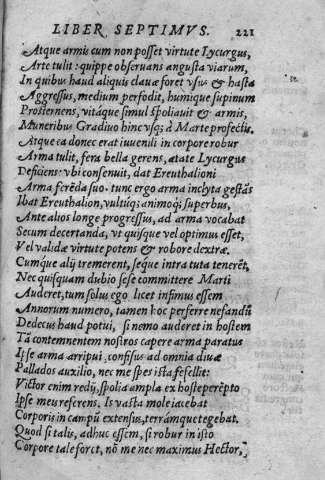 LIBER SEPTIMVS. 221
Atque armis cum non posset virtute Lycurgus,
Arte tulit: quippe obseruans angusta viarum,
In quibus haud aliquis clauæ foret vsus & hasta
Aggressus, medium perfodit, humique supinum
Prosternens, vitáque simul spoliauit & armis,
Muneribus Gradiuo hinc vsq; à Marte profectis.
Atque ea donec erat iuuenili in corpore robur
Arma tulit, fera bella gerens, ætate Lycurgus
Deficiens: vbi consenuit, dat Ereuthalioni
Arma ferēda suo. tunc ergo arma inclyta gestās
Ibat Ereuthalion, vultúq; animoq; superbus,
Ante alios longe progressus, ad arma vocabat
Secum decertanda, vt quisque vel optimus esset,
Vel validæ virtute potens & robore dextræ.
Cumque alij tremerent, seque intra tuta tenerēt,
Nec quisquam dubio sese committere Marti
Auderet, tum solus ego licet infimus essem
Annorum numero, tamen hoc perferre nefandū
Dedecus haud potui, si nemo auderet in hostem
Tā contemnentem nostros capere arma paratus
Ipse arma arripui, confisus ad omnia diuæ
Pallados auxilio, nec me spes ista fefellit:
Victor enim redij, spolia ampla ex hoste perēpto
Ipse meus referens. Is vasta mole iacebat
Corporis in campū extensus, terrámque tegebat.
Quod si talis, adhuc essem, si robur in isto
Corpore tale foret, nō me nec maximus Hector,